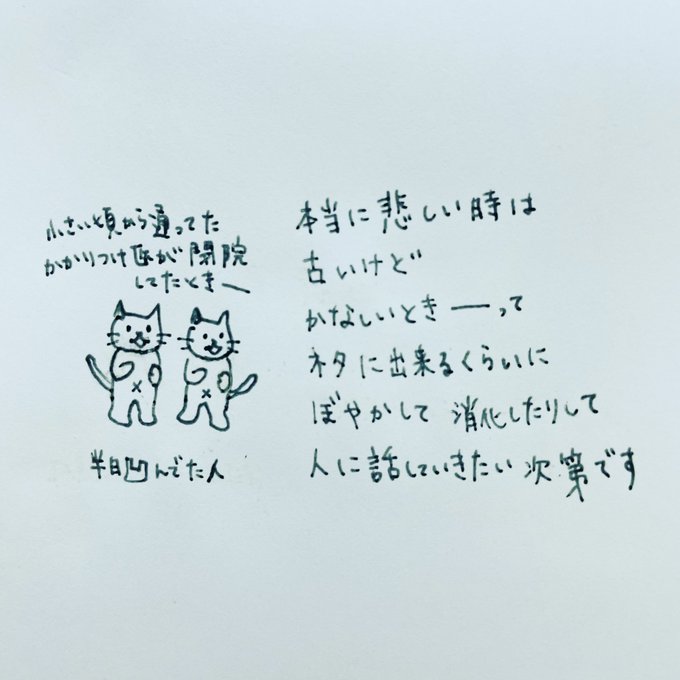 小さい頃から通ってた
かかりつけ医が閉院
してたときー
半日凹んでた人
本当に悲しい時は
古いけど
かなしいときーって
ネタに出来るくらいに
ぼやかして 消化したりして
人に話していきたい次第です